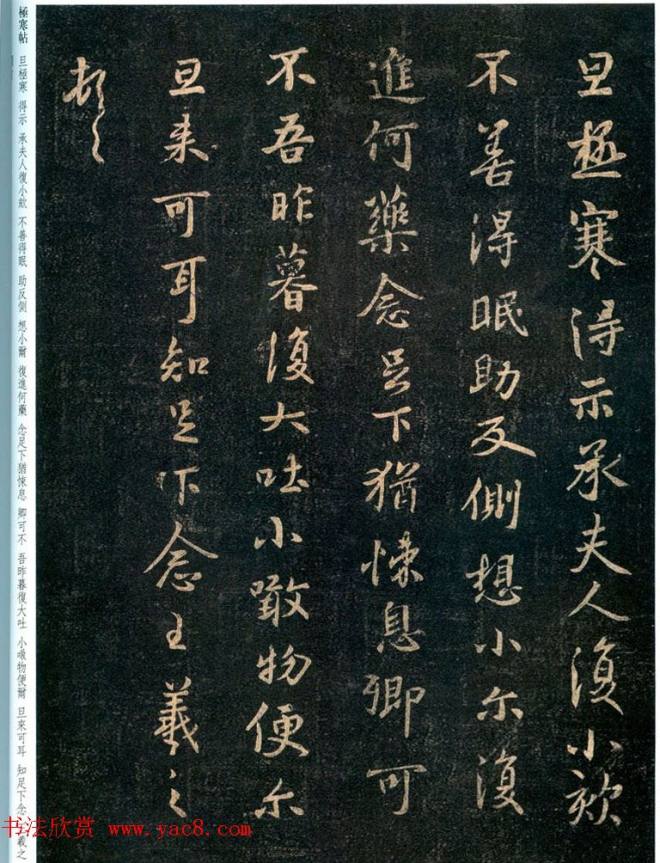 旦極寒得示承夫人復小欬
不善得眠助反側想小尔復
進何藥念足下猶悚息卿可
不吾昨暮復大吐小噉物便尔
旦来可耳知足下念王羲之
頓之
極寒帖 旦極寒 得示 承夫人復小欬 不善得眠 助反側 想小爾 復進何藥 念足下猶悚息 卿可不 吾昨暮復大吐 小噉物便爾 旦來可耳 知足下念 王羲之
书法欣赏 www.yac8.com